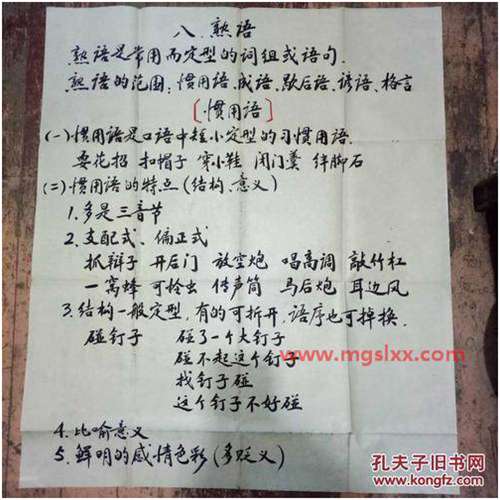 八、熟语
熟语是常用而定型的词组或语句.
熟语的范围:惯用语、成语、歇后语、谚语、格言
[惯用语]
(一)惯用语是口语中短小定型的习惯用语.
耍花招 扣帽子 穿小鞋 闭门羹 绊脚石
(二)惯用语的特点(结构、意义)
1.多是三音节
2.支配式、偏正式
抓辫子 开后门 放空炮 唱高调 敲竹杠
一窝蜂 可怜虫 传声筒 马后炮 耳边风
3.结构一般定型,有的可拆开,语序也可掉换.
碰钉子 碰了一个大钉子
碰不起这个钉子
www.mgslxx.com
找钉子碰
这个钉子不好碰
4.比喻意义
5.鲜明的感情色彩(多贬义)
孔夫子旧书网
www.kongfz.com